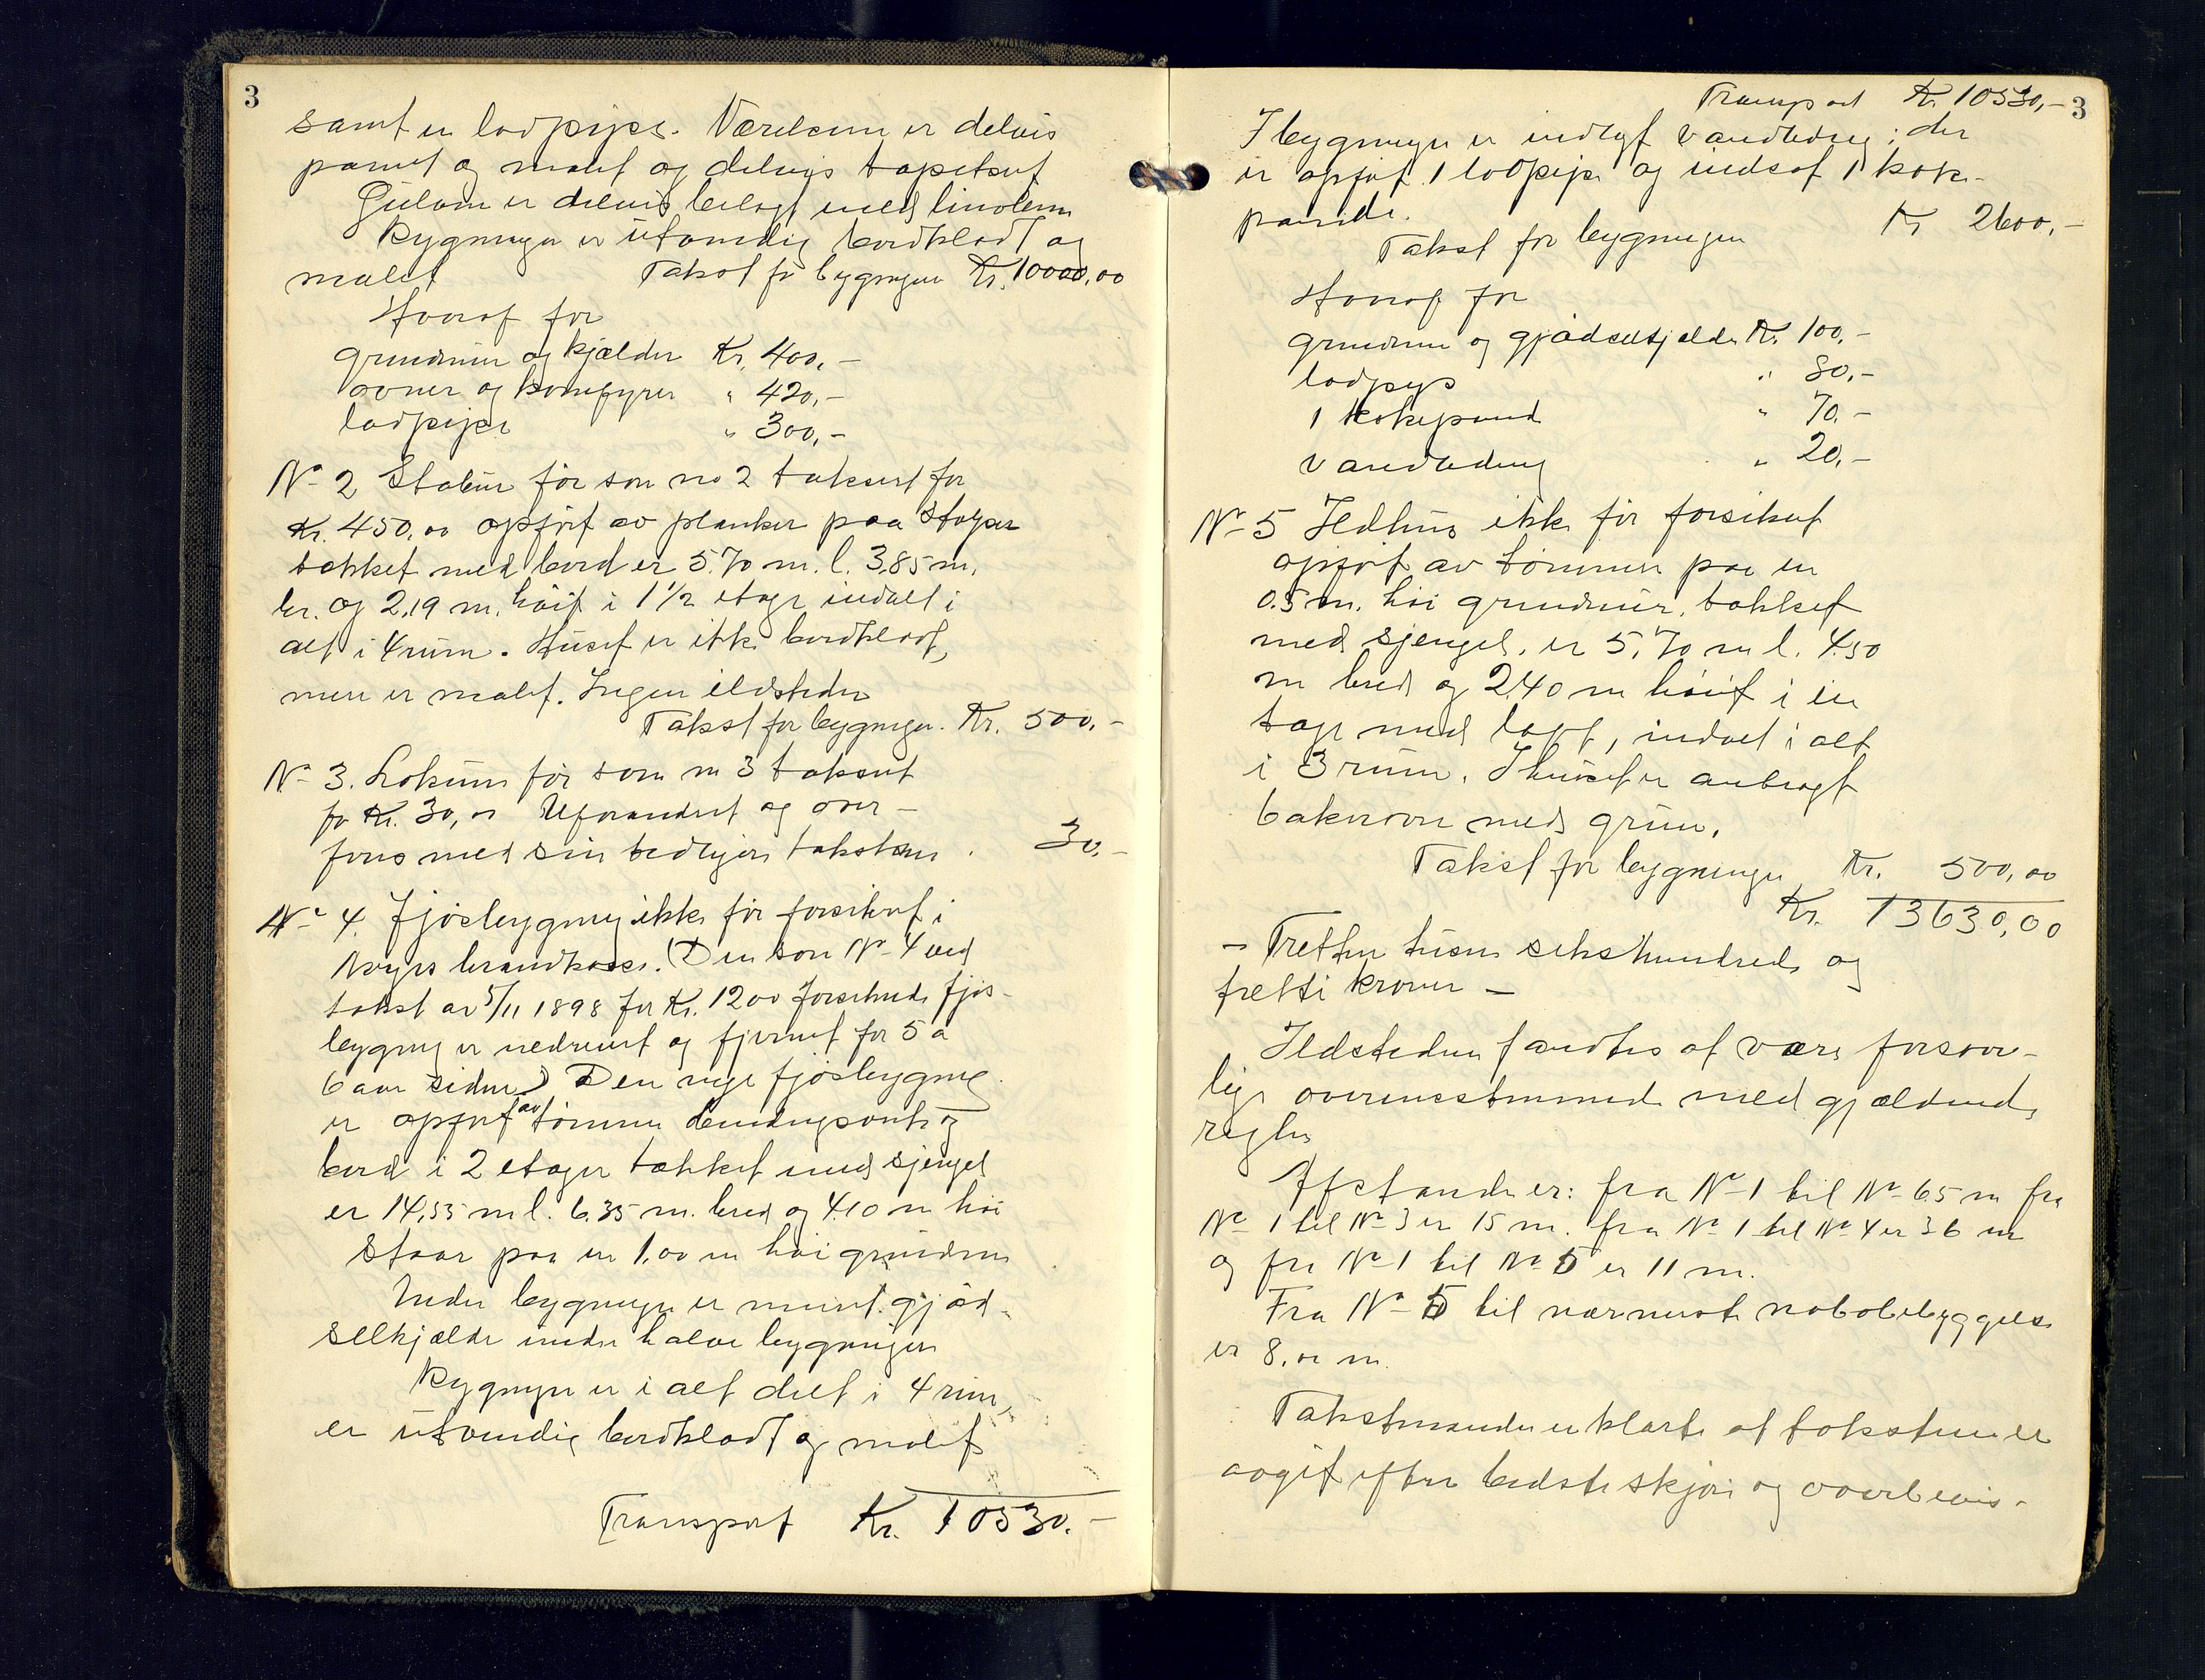 3
samt en lodpipe. Værelserne er delvis
panet og malet og delvis tapetsert
Gulvene er delvis belagt med linoleum
Bygningen er utvendig bordklædt og
malet Takst for bygningen Kr. 10000,00
Hvorav for
grundmur og kjælder Kr. 400,-
ovner og komfyrer " 420,-
lodpipe " 300,-
No 2 Stabur før som no 2 taksert for
Kr. 450,00 opført av planker paa stolper
tækket med bord er 5.70 m. l. 3.85 m.
br. og 2.19 m. høit i 1 1/2 etage indelt i
alt i 4 rum. Huset er ikke bordklædt,
men er malet. Ingen ildsteder
Takst for bygningen. Kr. 500,-
No 3. Lokum før som no 3 taksert
for Kr. 30,00 Uforandret og over-
føres med sin tidligere takstsum . 30,-
No 4. Fjøsbygning ikke før forsikret i
Norges brandkasse. (Den som No 4 ved
takst av 5/11 1898 for Kr. 1200 forsikrede fjøs-
bygning er nedrevet og fjernet for 5 a
6 aar siden.) Den nye fjøsbygning
er opført av tømmer bindingsverk og
bord i 2 etager tækket med spengel
er 14,55 m l. 6.35 m. bred og 4.10 m høi
Staar paa en 1.00 m høi grundmur
Under bygningen er muret gjød-
selkjælder under halve bygningen
Bygningen er i alt delt i 4 rum,
er utvendig bordklædt og malet
Transport Kr. 10530.-
Transport Kr 10530,- 3
I bygningen er indlagt vandledning; der
er opført 1 lodpipe og indsat 1 koke-
pande.
Takst for bygningen Kr 2600,-
Hvorav for
grundmur og gjødselkjælder Kr. 100,-
lodpipe " 80,-
1 kokepande " 70,-
vandledning " 20,-
No 5 Ildhus ikke før forsikret
opført av tømmer paa en
0.5 m. høi grundmur, tækket
med spengel, er 5,70 m l. 4.50
m bred og 2,40 m høit i en
tage med loft, indelt i alt
i 3 rum. I huset er anbragt
bakerovn med grue.
Takst for bygningen Kr. 500,00
Kr. 13630,00
- Tretten tusen sekshundrede og
tretti kroner -
Ildstederne fandtes at være forsvar-
lige overensstemmende med gjældende
regler
Afstanden er: fra No 1 til No 2 6.5 m fra
No 1 til No 3 er 15 m. fra No 1 til No 4 er 36 m
og fra No 1 til No 5 er 11 m.
Fra No 5 til nærmeste nabobebyggelse
er 8.00 m.
Takstmændene erklærte at taksten er
avgit efter bedste skjøn og overbevis-